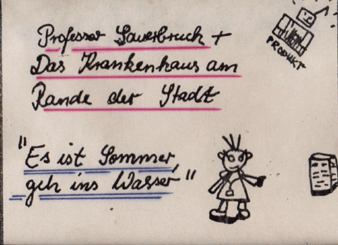 Professor Sauerbruch +
Das Krankenhaus am
Rande der Stadt
PRODUKT
"Es ist Sommer,
geh ins Wasser"